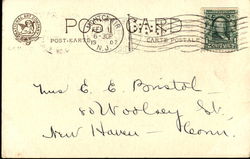 POST CARD
POST-KARTE
CARTE POSTALE
6-30P
N.J.
Miss E. E. Bristol-
80 Woolsey St.,
New Haven-
Conn.